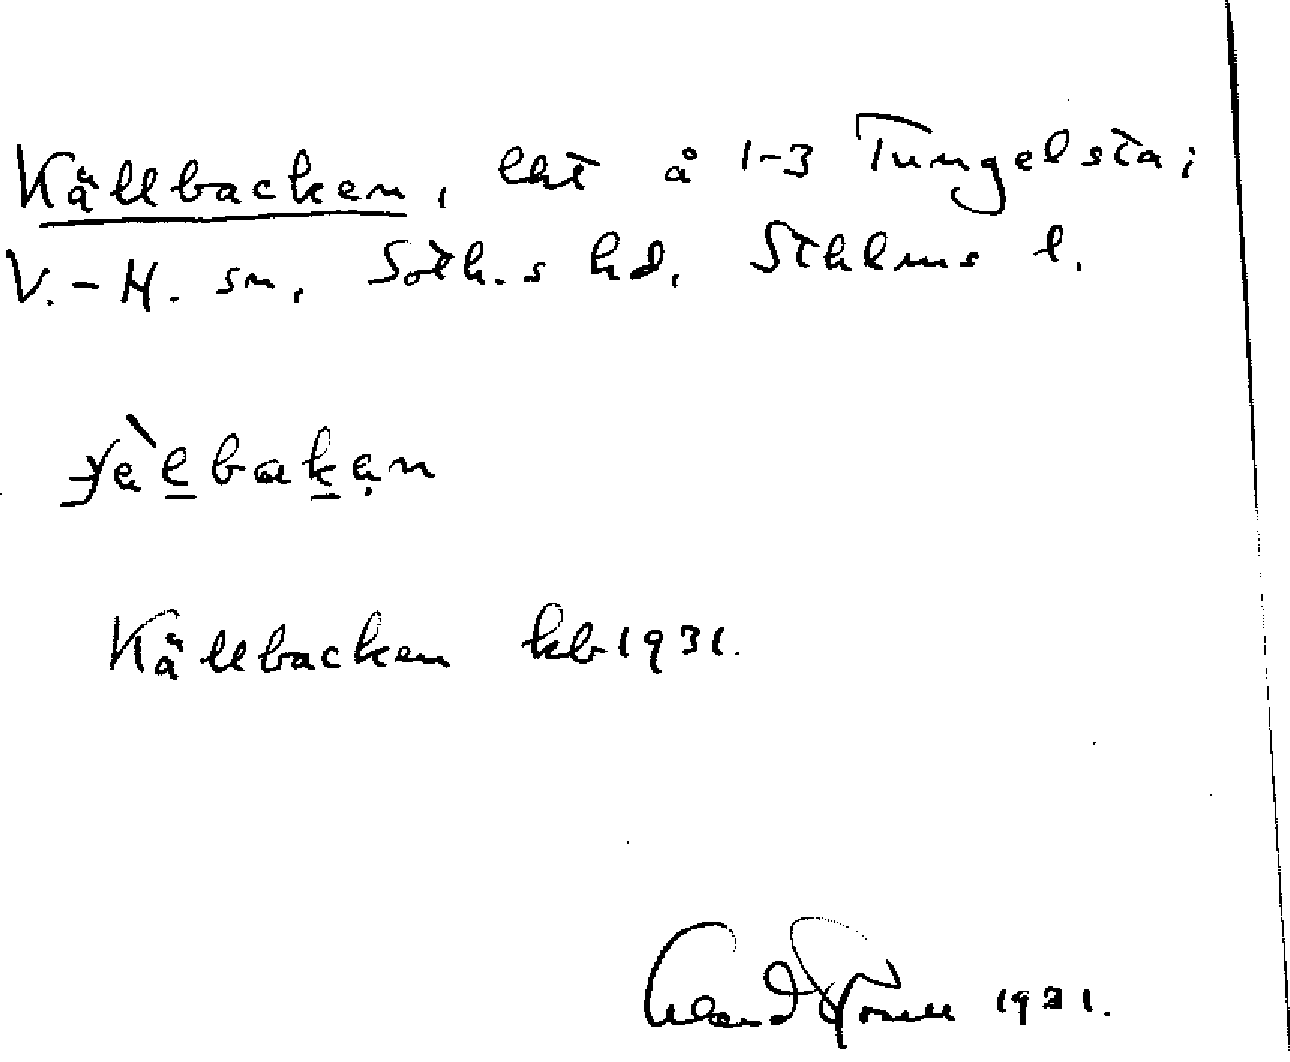 Källbacken, lht å 1-3 Tungelsta;
V.-H. sn, Soth.s hd, Sthlms l.
Källbacken kb 1931.
1931.